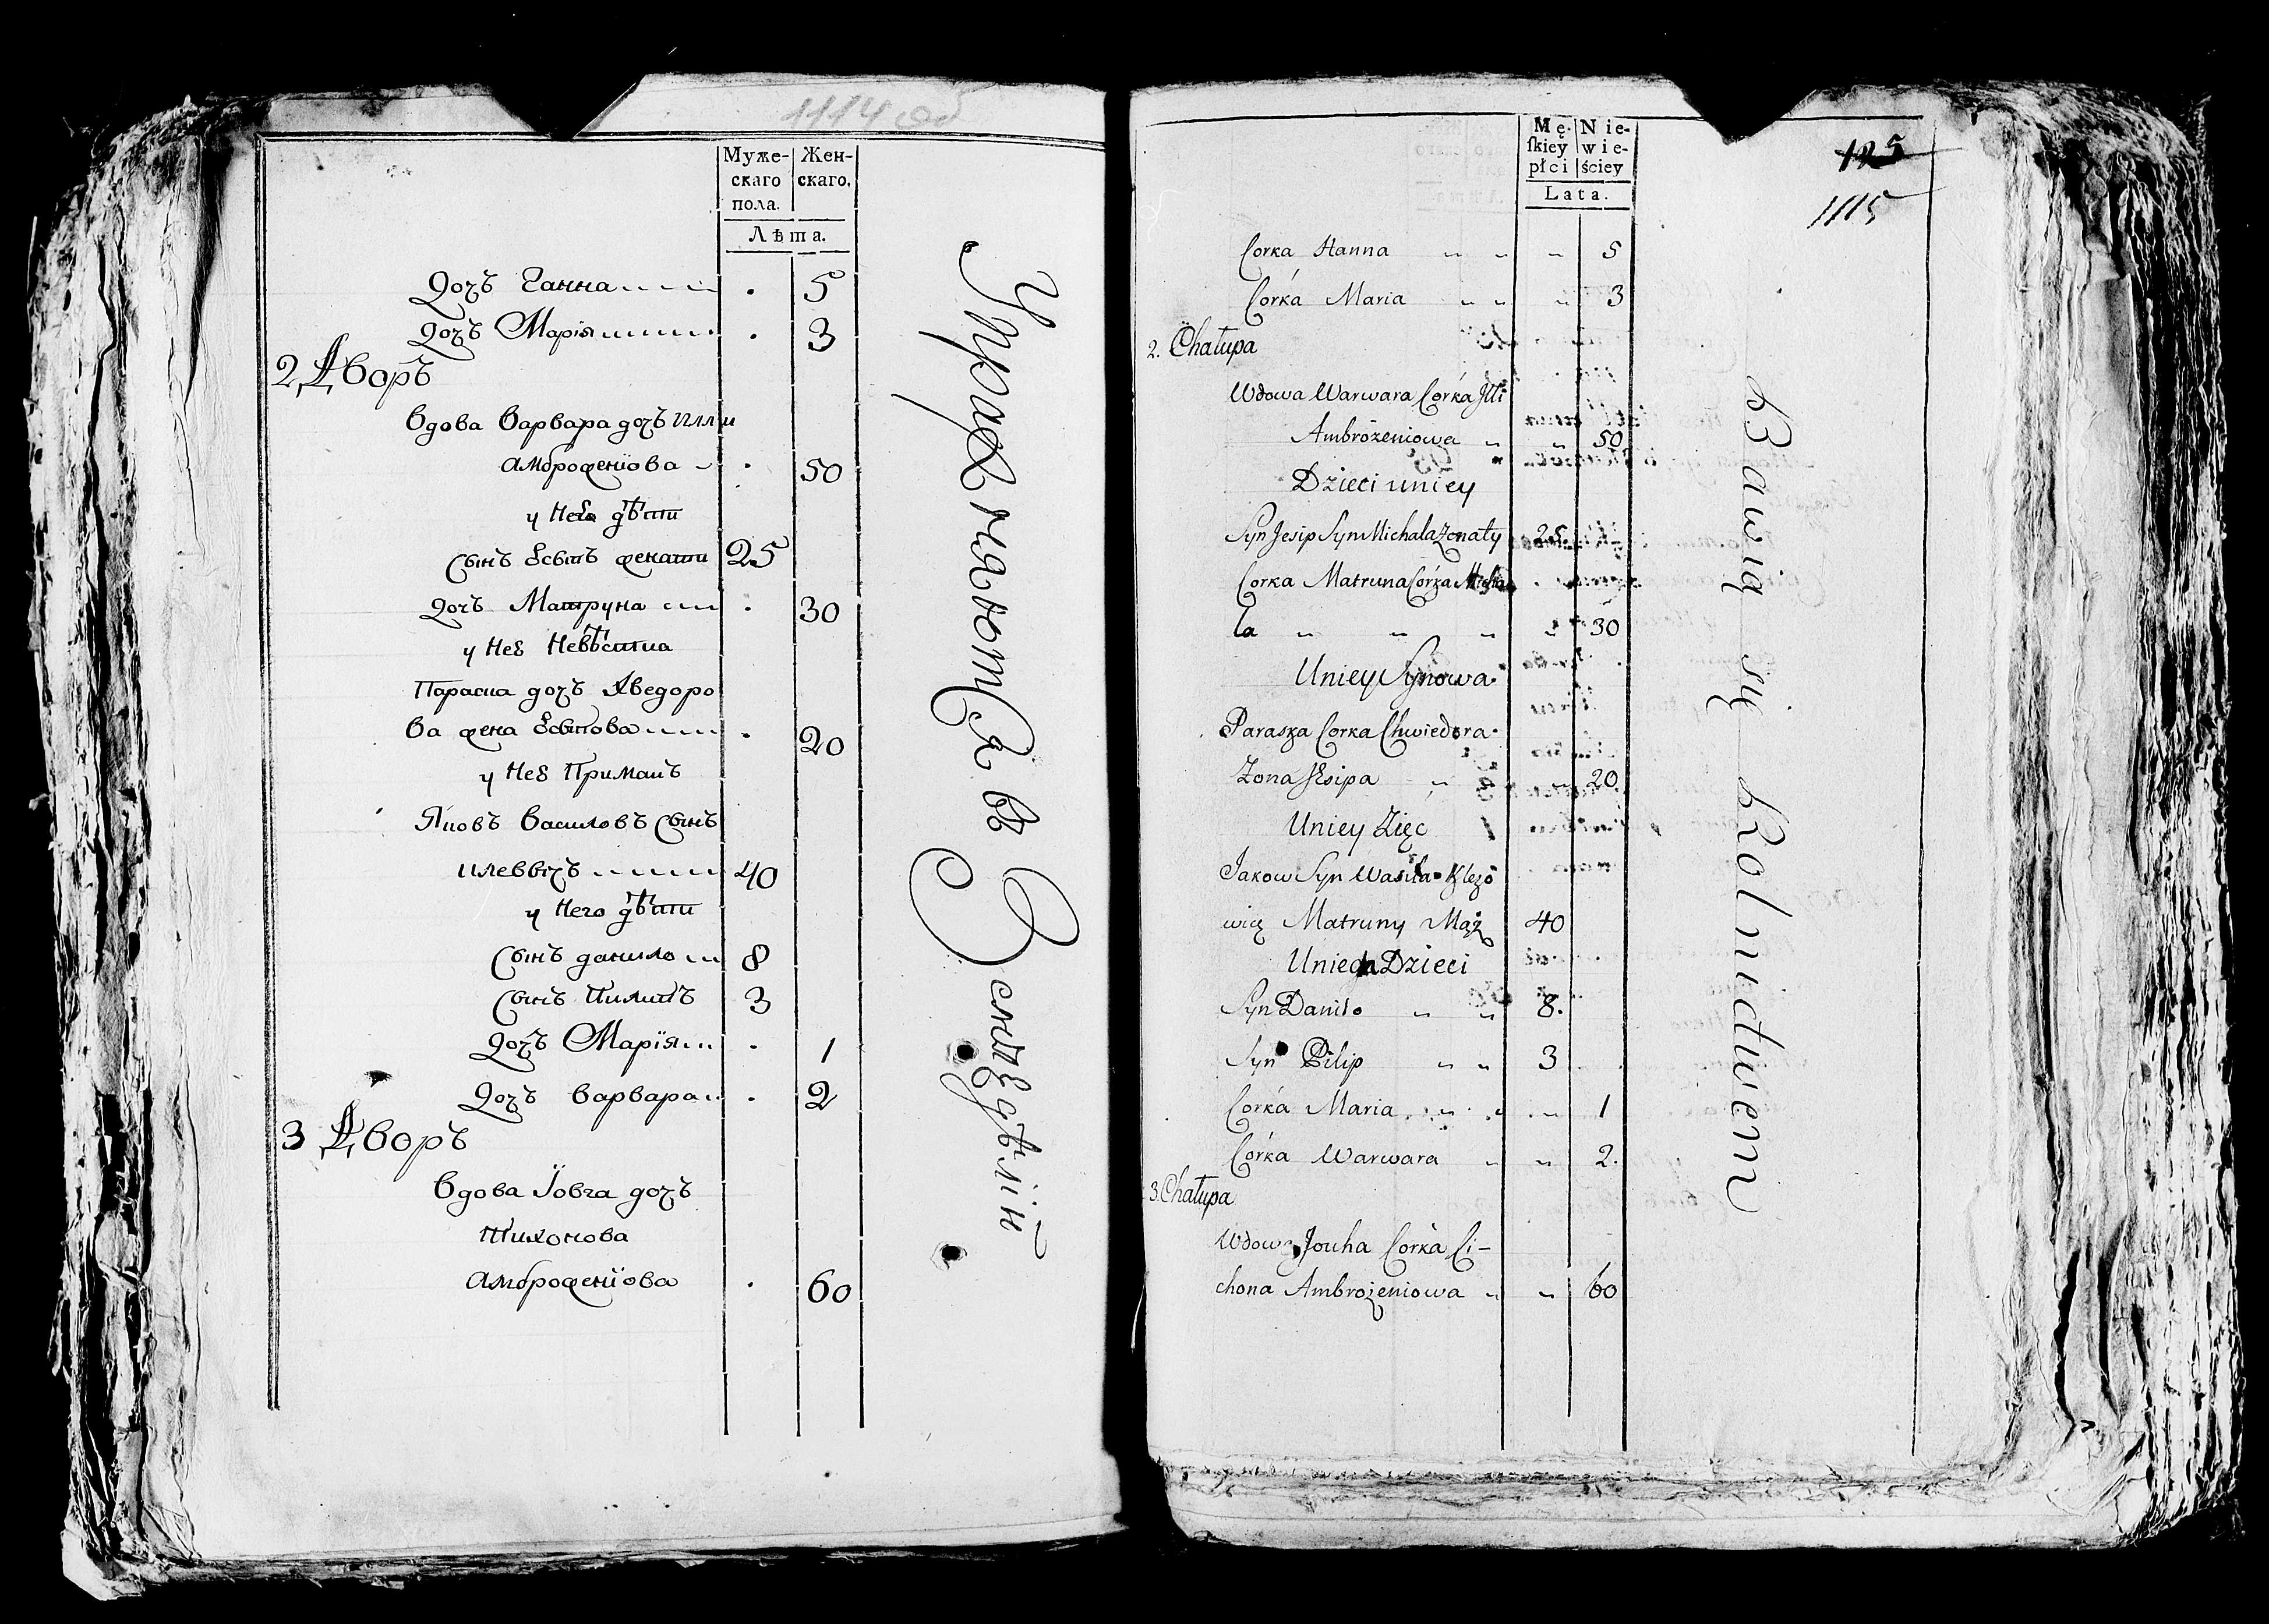 1114 об
Муже-
скаго
пола.
Жен-
скаго.
Лѣта.
Дочь Ганна 5
Дочь Марія 3
2 Дворъ
Вдова Варвара дочь Илли
Амброженіова 50
у Нея дѣти
Сынъ Есыпъ женаты 25
Дочь Матруна 30
у Нея Невѣстка
Параска дочь Хведоро
ва жена Есыпова 20
у Нея Примакъ
Яковъ Василовъ Сынъ
40
у Него дѣти
Сынъ данило 8
Сынъ Пилипъ 3
Дочь Марія 1
Дочь Варвара 2
3 Дворъ
Вдова Іовга дочь
Тихонова
Амброженіова 60
Упражняются въ Земледѣліи
Mę-
skiey
płci
Nie-
wie-
ściey
Lata.
125
1115
Corka Hanna " " " 5
Corka Maria " " " 3
2. Chałupa
Wdowa Warwara Córka Illi
Ambrożeniowa " " 50
Dzieci uniey
Syn Jesip Syn Michała Żonaty 25
Corka Matruna Córka Micha
ła " " " " 30
Uniey Synowa
Paraska Corka Chwiedora
Żona Jesipa " " 20
Uniey Zięc
Jakow Syn Wasila Klezo
wicz Matruny Mąż 40
Uniego Dzieci
Syn Daniło " " 8.
Syn Pilip " " 3
Corka Maria " " " 1
Córka Warwara " " 2.
3. Chałupa
Wdowa Jouha Corka Ci-
chona Ambrożeniowa " " 60
Bawią się Rolnictwem